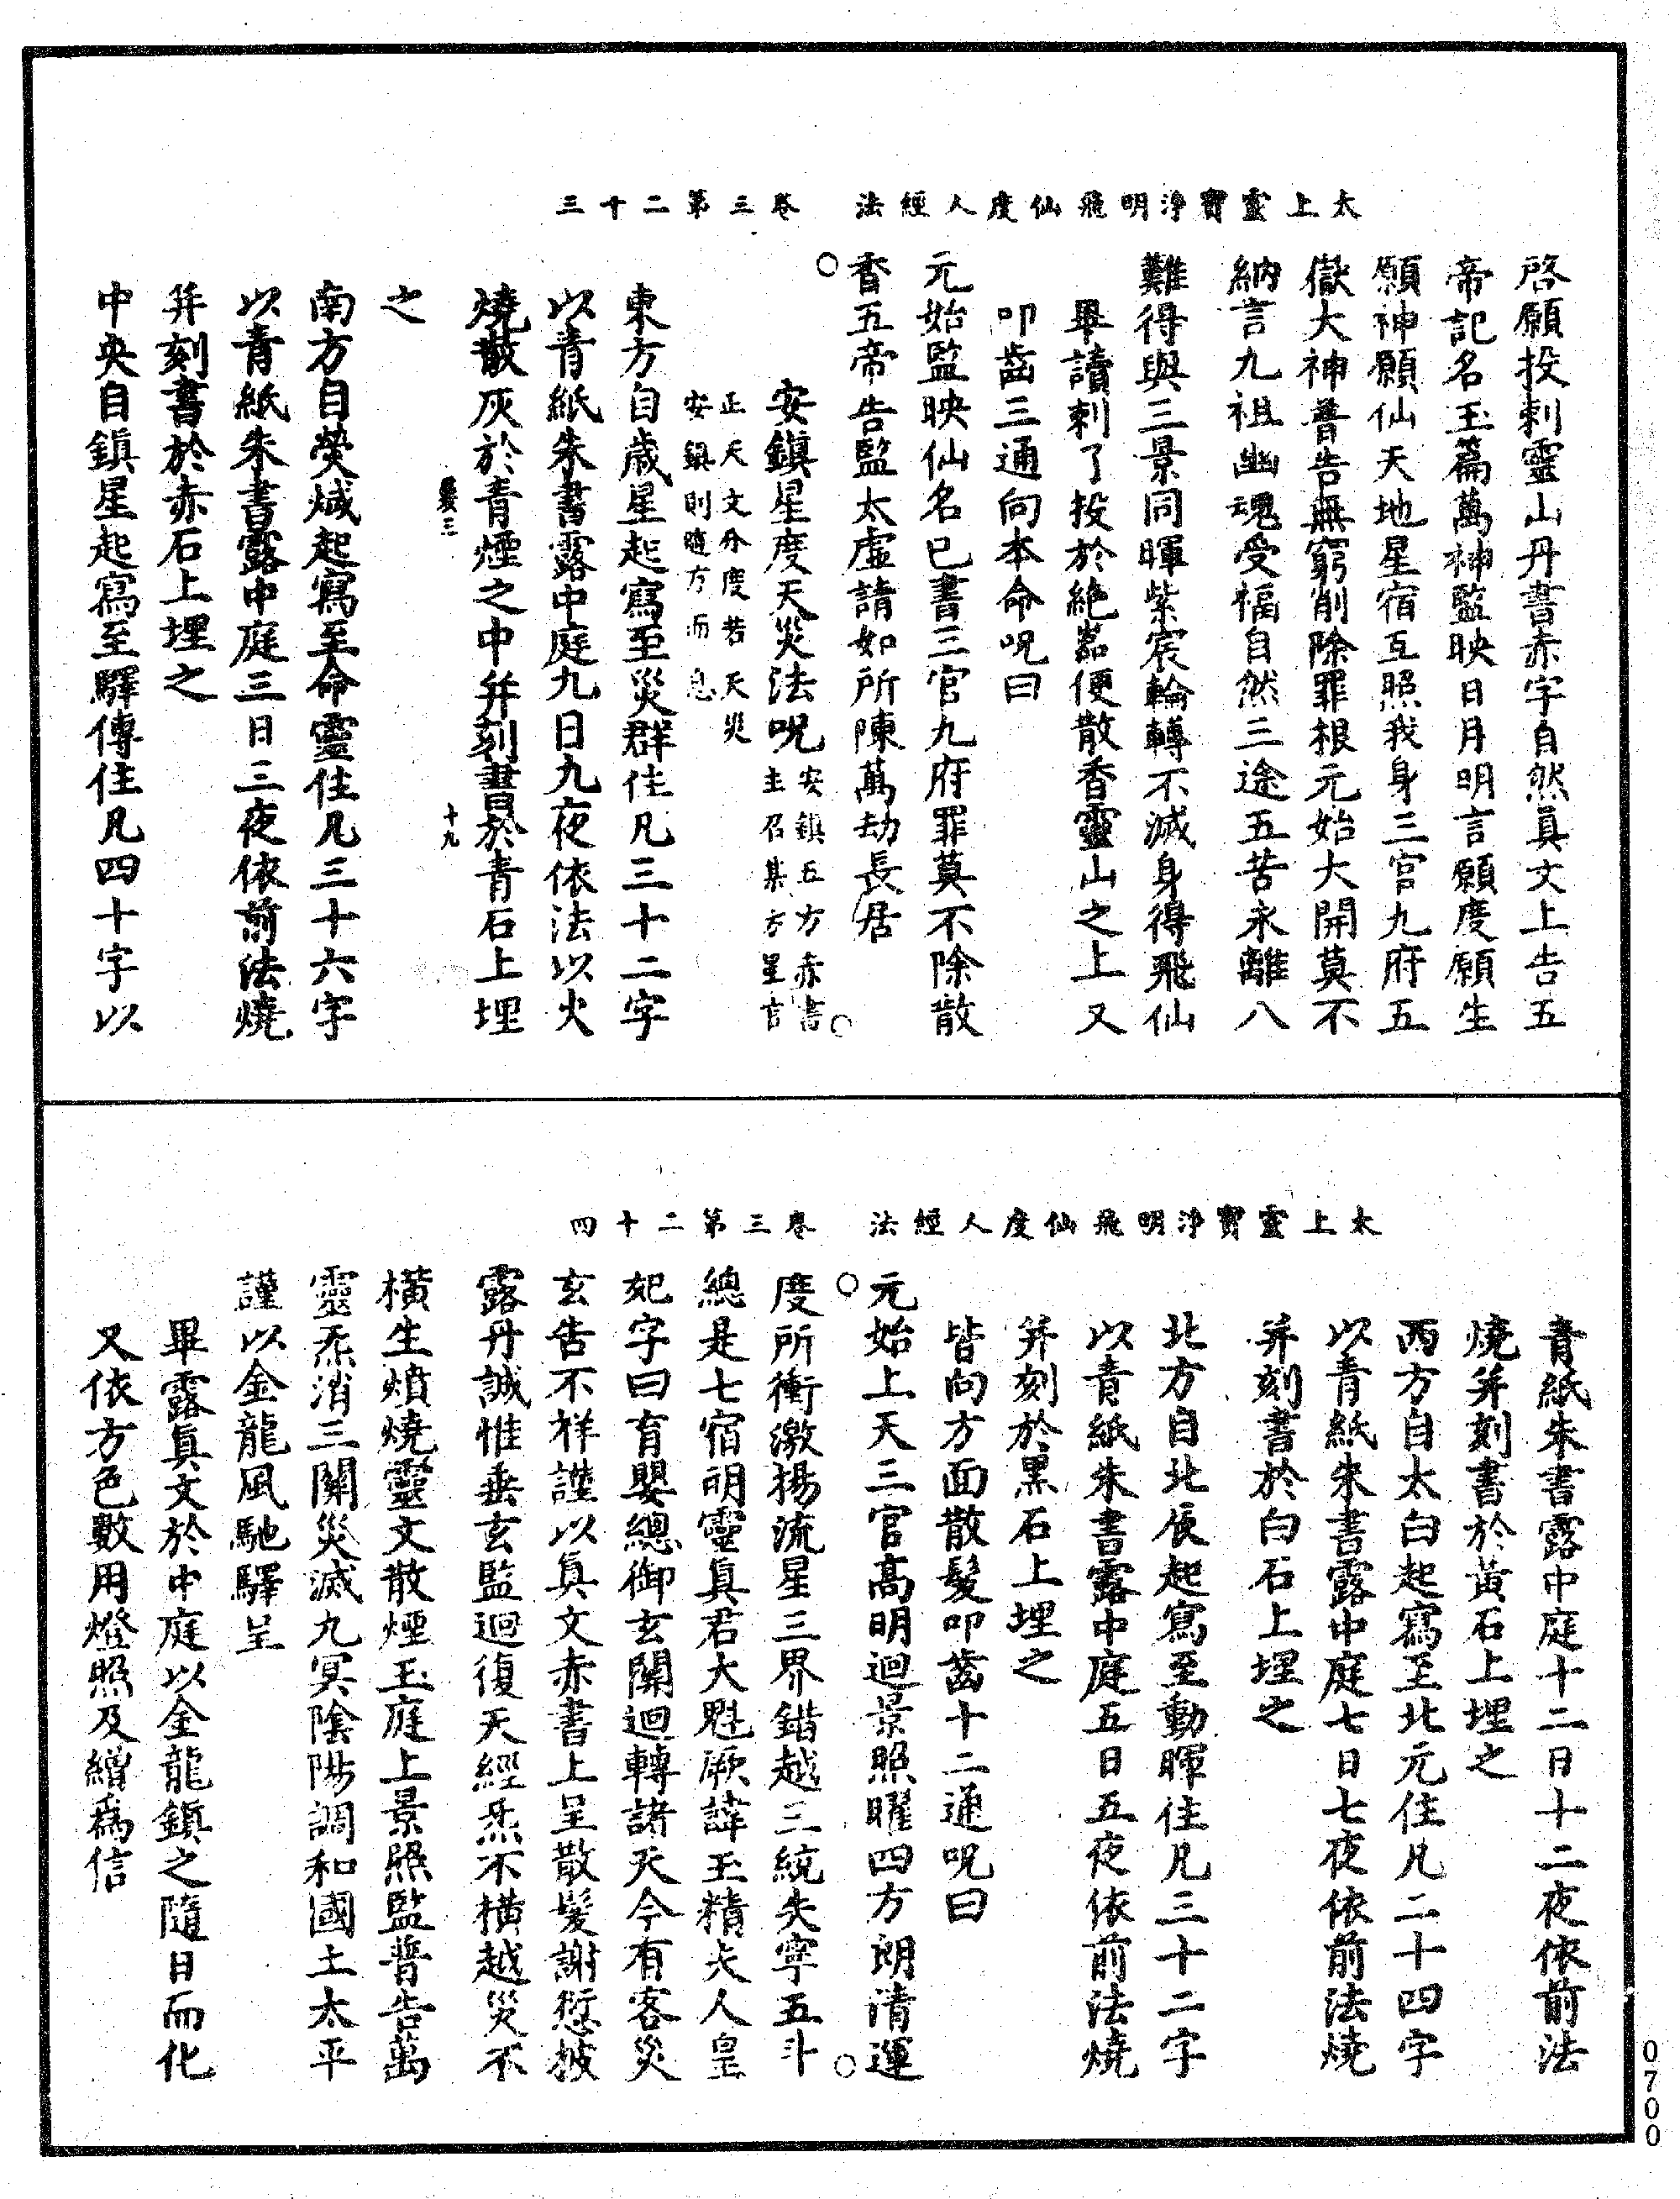 太上靈寶淨明飛仙度人經法　卷三第二十三
啓願投刺靈山丹書赤字自然眞文上告五
帝記名玉篇萬神監映日月明言願度願生
願神願仙天地星宿互照我身三官九府五
嶽大神普告無窮削除罪根元始大開莫不
納言九祖幽魂受福自然三途五苦永離八
難得與三景同暉紫宸輪轉不滅身得飛仙
畢讀刺了投於絶巖便散香靈山之上又
叩齒三通向本命呪曰
元始監映仙名已書三官九府罪莫不除散
香五帝告監太虛請如所陳萬劫長居
安鎮星度天災法呪安鎮五方赤書
主召某方星言
正天文分度若天災
安鎮則隨方而息
東方自歲星起寫至災群住凡三十二字
以青紙朱書露中庭九日九夜依法以火
燒散灰於青煙之中并刻書於青石上埋
十九
之
南方自熒惑起寫至命靈住凡三十六字
以青紙朱書露中庭三日三夜依前法燒
并刻書於赤石上埋之
中央自鎮星起寫至驛傳住凡四十字以
太上靈寶淨明飛仙度人經法　卷三第二十四
青紙朱書露中庭十二日十二夜依前法
燒并刻書於黃石上埋之
西方自太白起寫至北元住凡二十四字
以青紙朱書露中庭七日七夜依前法燒
并刻書於白石上埋之
北方自北辰起寫至動暉住凡三十二字
以青紙朱書露中庭五日五夜依前法燒
并刻於黑石上埋之
皆向方面散髮叩齒十二通呪曰
元始上天三官高明迴景照曜四方朗清運
度所衝激揚流星三界錯越三統失寧五斗
總是七宿明靈眞君大魁厥諱玉精夫人皇
妃字曰育嬰總御玄關迴轉諸天今有客災
玄告不祥謹以眞文赤書上呈散髮謝愆披
露丹誠惟垂玄監迴復天經炁不橫越災不
橫生燌燒靈文散煙玉庭上景照監普告萬
靈炁消三關災滅九冥陰陽調和國土太平
謹以金龍風馳驛呈
畢露眞文於中庭以金龍鎮之隨日而化
又依方色數用燈照及繒爲信
0700